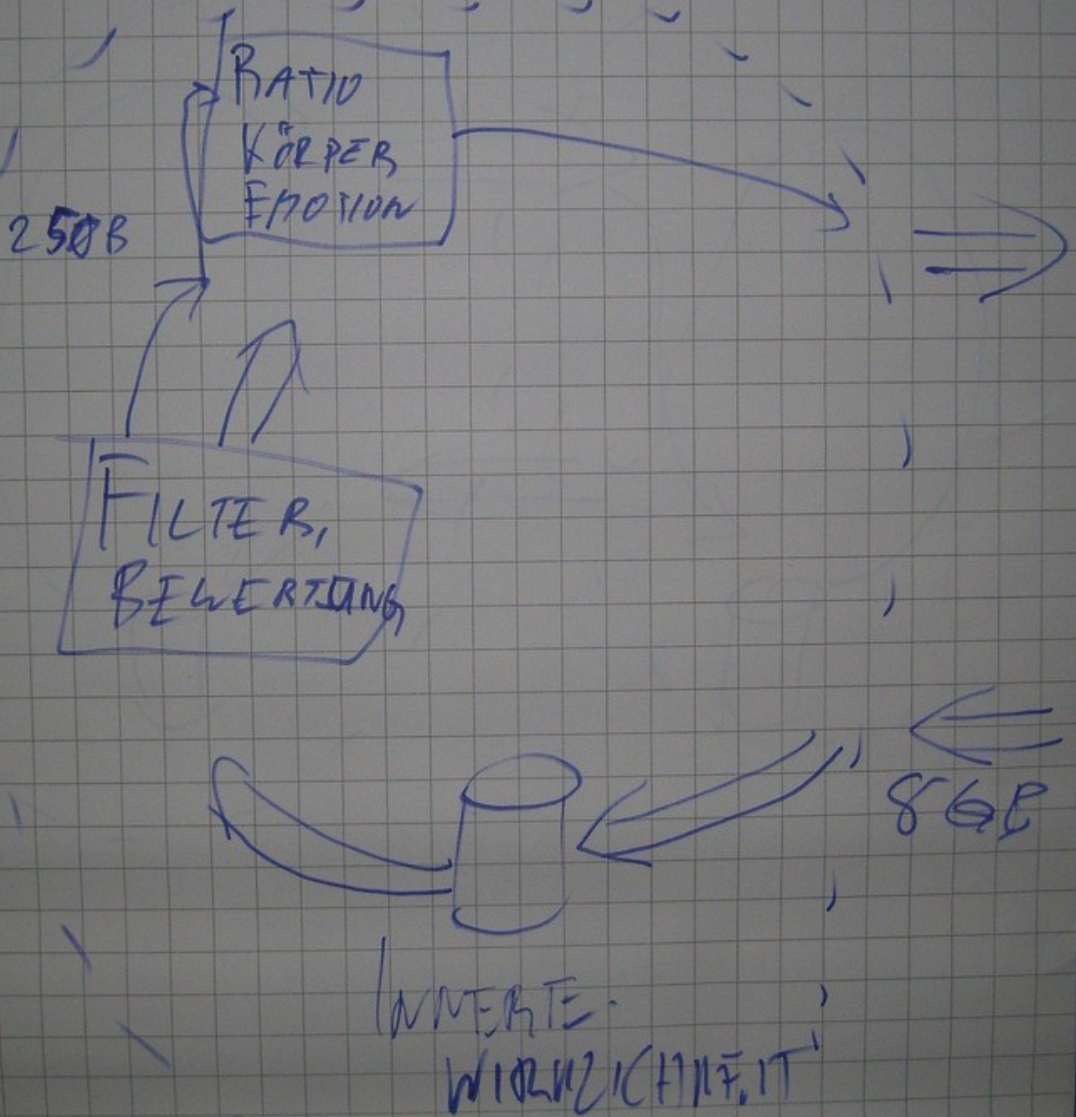 RATIO
KÖRPER
EMOTION
250B
FILTER,
BEWERTUNG
8GB
INNERTE-
WIRKLICHKEIT